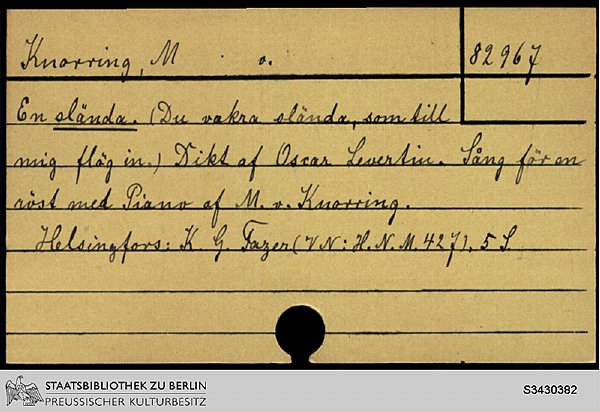 Knorring, M v.
82967
En slända. (Du vakra slända, som till
mig flög in.) Dikt af Oscar Levertin. Sång för en
röst med Piano af M. v. Knorring.
Helsingfors: K. G. Fazer (VN: H.N.M. 427). 5 S.
STAATSBIBLIOTHEK ZU BERLIN
PREUSSISCHER KULTURBESITZ
S3430382